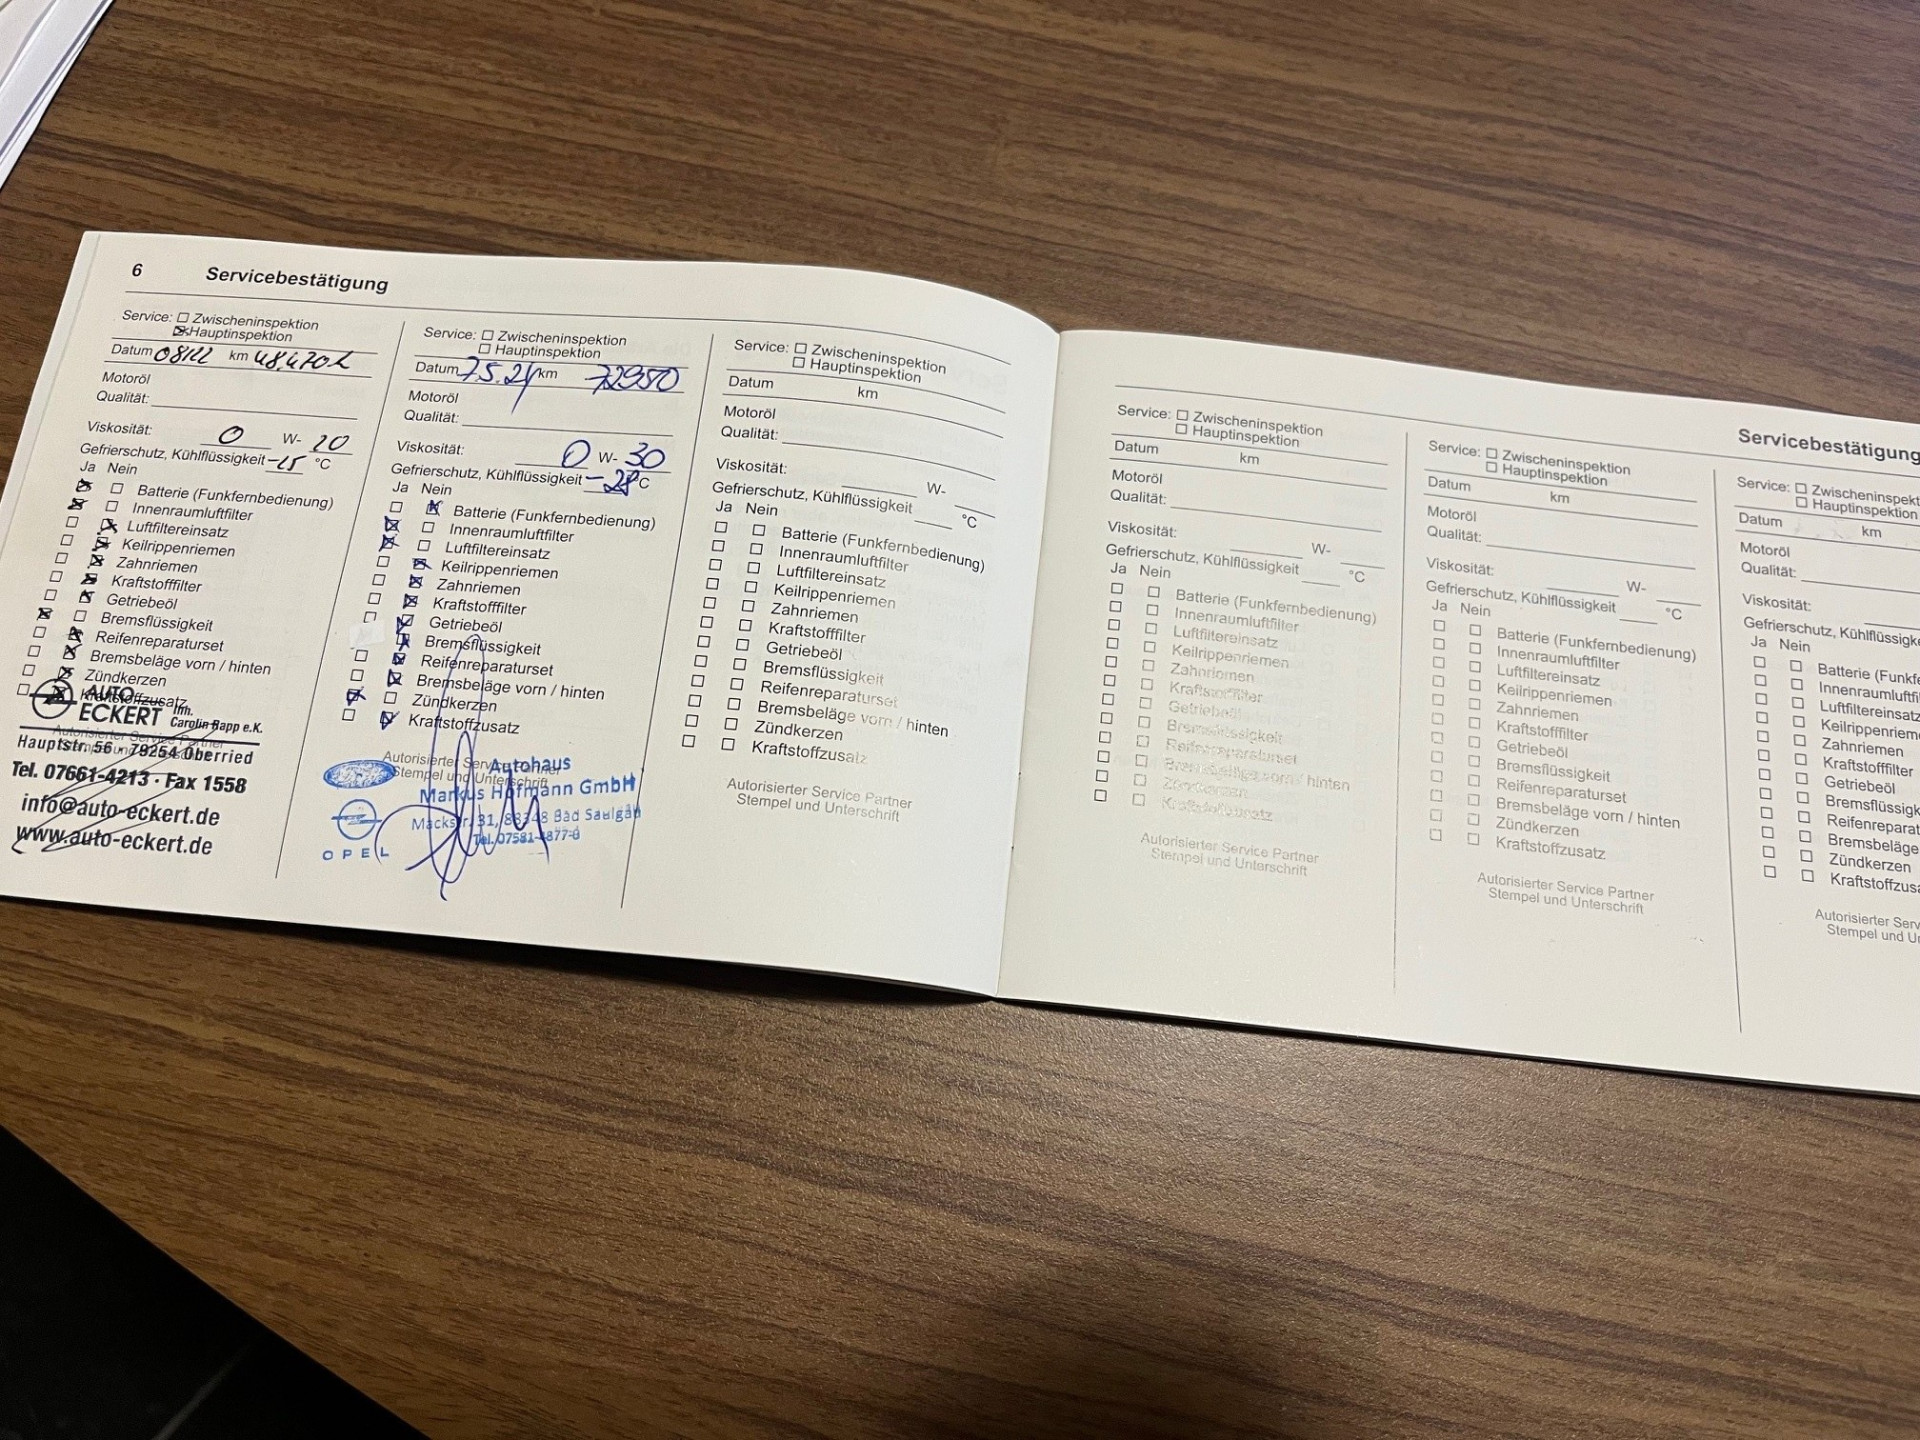 6 Servicebestätigung
Service: Zwischeninspektion
Hauptinspektion
Datum km
Motoröl
Qualität:
Viskosität: 0 W- 20
Gefrierschutz, Kühlflüssigkeit -25 °C
Ja Nein
Batterie (Funkfernbedienung)
Innenraumluftfilter
Luftfiltereinsatz
Keilrippenriemen
Zahnriemen
Kraftstofffilter
Getriebeöl
Bremsflüssigkeit
Reifenreparaturset
Bremsbeläge vorn / hinten
Zündkerzen
Kraftstoffzusatz
AUTO
ECKERT Inh.
Carolin Rapp e.K.
Hauptstr. 56 · 79254 Oberried
Tel. 07661-4213 · Fax 1558
info@auto-eckert.de
www.auto-eckert.de
Service: Zwischeninspektion
Hauptinspektion
Datum 7.5.24 km 72950
Motoröl
Qualität:
Viskosität: 0 W- 30
Gefrierschutz, Kühlflüssigkeit -28 °C
Ja Nein
Batterie (Funkfernbedienung)
Innenraumluftfilter
Luftfiltereinsatz
Keilrippenriemen
Zahnriemen
Kraftstofffilter
Getriebeöl
Bremsflüssigkeit
Reifenreparaturset
Bremsbeläge vorn / hinten
Zündkerzen
Kraftstoffzusatz
Autorisierter Service Partner
Stempel und Unterschrift
Autohaus
Markus Hofmann GmbH
Mackstr. 31, 88348 Bad Saulgau
OPEL
Service: Zwischeninspektion
Hauptinspektion
Datum km
Motoröl
Qualität:
Viskosität: W-
Gefrierschutz, Kühlflüssigkeit °C
Ja Nein
Batterie (Funkfernbedienung)
Innenraumluftfilter
Luftfiltereinsatz
Keilrippenriemen
Zahnriemen
Kraftstofffilter
Getriebeöl
Bremsflüssigkeit
Reifenreparaturset
Bremsbeläge vorn / hinten
Zündkerzen
Kraftstoffzusatz
Autorisierter Service Partner
Stempel und Unterschrift
Servicebestätigung
Service: Zwischeninspektion
Hauptinspektion
Datum km
Motoröl
Qualität:
Viskosität: W-
Gefrierschutz, Kühlflüssigkeit °C
Ja Nein
Batterie (Funkfernbedienung)
Innenraumluftfilter
Luftfiltereinsatz
Keilrippenriemen
Zahnriemen
Kraftstofffilter
Getriebeöl
Bremsflüssigkeit
Reifenreparaturset
Bremsbeläge vorn / hinten
Zündkerzen
Kraftstoffzusatz
Autorisierter Service Partner
Stempel und Unterschrift
Service: Zwischeninspektion
Hauptinspektion
Datum km
Motoröl
Qualität:
Viskosität: W-
Gefrierschutz, Kühlflüssigkeit °C
Ja Nein
Batterie (Funkfernbedienung)
Innenraumluftfilter
Luftfiltereinsatz
Keilrippenriemen
Zahnriemen
Kraftstofffilter
Getriebeöl
Bremsflüssigkeit
Reifenreparaturset
Bremsbeläge vorn / hinten
Zündkerzen
Kraftstoffzusatz
Autorisierter Service Partner
Stempel und Unterschrift
Service: Zwischeninspekt
Hauptinspektion
Datum km
Motoröl
Qualität:
Viskosität:
Gefrierschutz, Kühlflüssigke
Ja Nein
Batterie (Funkfe
Innenraumluftfi
Luftfiltereinsatz
Keilrippenrieme
Zahnriemen
Kraftstofffilter
Getriebeöl
Bremsflüssigk
Reifenreparat
Bremsbeläge
Zündkerzen
Kraftstoffzusa
Autorisierter Serv
Stempel und U